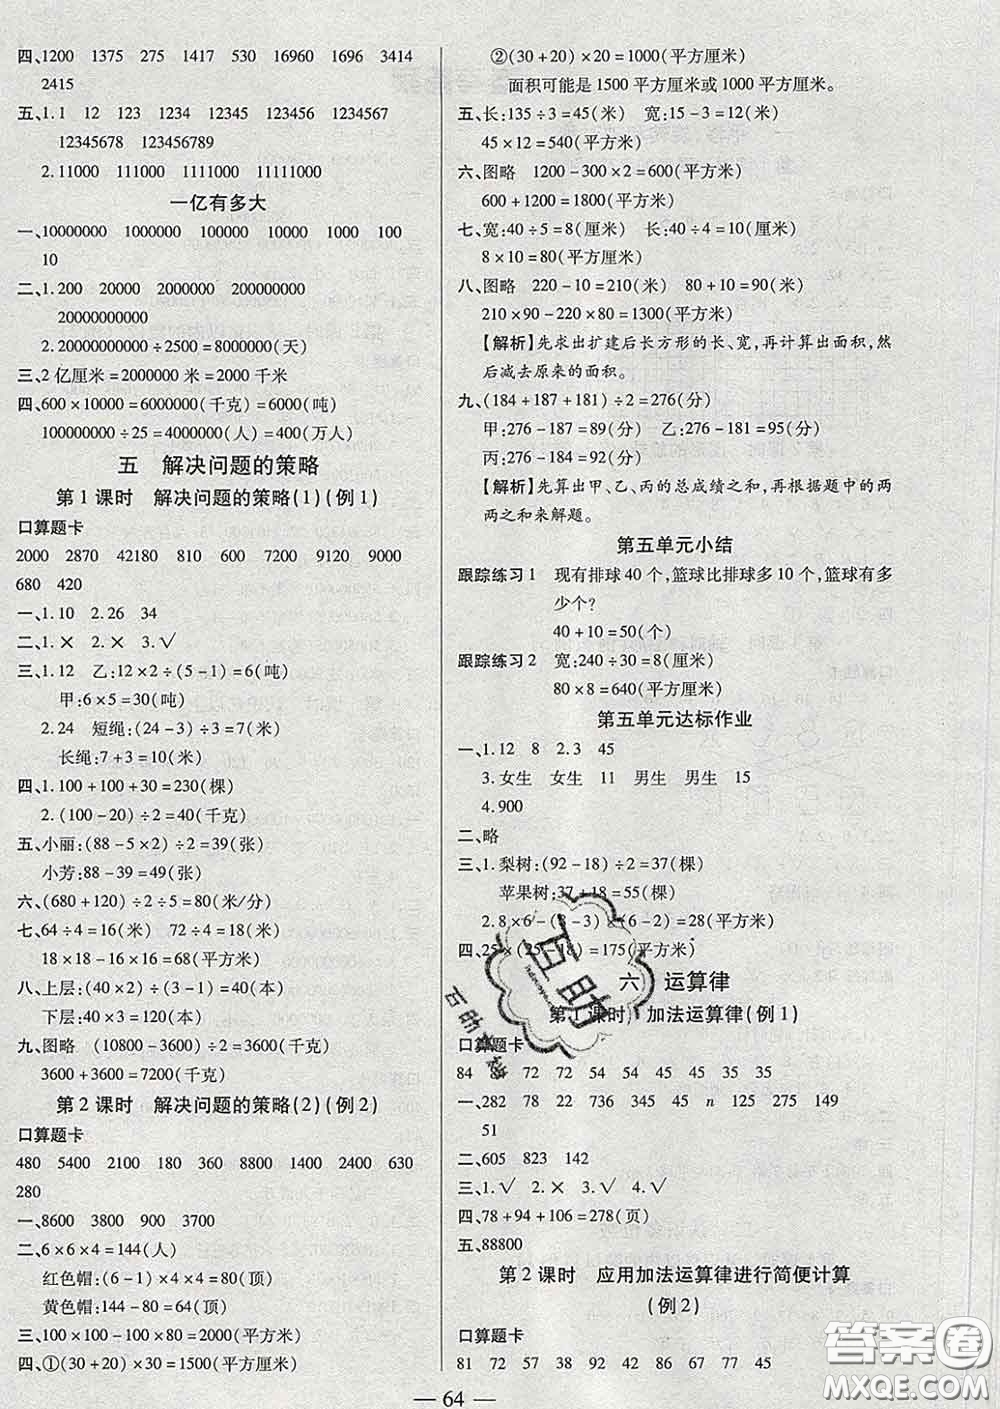 四、1200 1375 275 1417 530 16960 1696 3414
2415
五、1. 1 12 123 1234 12345 123456 1234567
12345678 123456789
2. 11000 111000 1111000 11111000
一亿有多大
一、10000000 1000000 100000 10000 1000 100
10
二、1. 200 20000 2000000 200000000
20000000000
2. 20000000000÷2500=8000000(天)
三、2亿厘米=2000000米=2000千米
四、600×10000=6000000(千克)=6000(吨)
100000000÷25=4000000(人)=400(万人)
五 解决问题的策略
第1课时 解决问题的策略(1)(例1)
口算题卡
2000 2870 42180 810 600 7200 9120 9000
680 420
一、1. 10 2. 26 34
二、1. × 2. × 3. √
三、1. 12 乙:12×2÷(5-1)=6(吨)
甲:6×5=30(吨)
2. 24 短绳:(24-3)÷3=7(米)
长绳:7+3=10(米)
四、1. 100+100+30=230(棵)
2. (100-20)÷2=40(千克)
五、小丽:(88-5×2)÷2=39(张)
小芳:88-39=49(张)
六、(680+120)÷2÷5=80(米/分)
七、64÷4=16(米) 72÷4=18(米)
18×18-16×16=68(平方米)
八、上层:(40×2)÷(3-1)=40(本)
下层:40×3=120(本)
九、图略 (10800-3600)÷2=3600(千克)
3600+3600=7200(千克)
第2课时 解决问题的策略(2)(例2)
口算题卡
480 5400 2100 180 360 8800 1400 2400 630
280
一、8600 3800 900 3700
二、6×6×4=144(人)
红色帽:(6-1)×4×4=80(顶)
黄色帽:144-80=64(顶)
三、100×100-100×80=2000(平方米)
四、①(30+20)×30=1500(平方厘米)
②(30+20)×20=1000(平方厘米)
面积可能是1500平方厘米或1000平方厘米。
五、长:135÷3=45(米) 宽:15-3=12(米)
45×12=540(平方米)
六、图略 1200-300×2=600(平方米)
600+1200=1800(平方米)
七、宽:40÷5=8(厘米) 长:40÷4=10(厘米)
8×10=80(平方厘米)
八、图略 220-10=210(米) 80+10=90(米)
210×90-220×80=1300(平方米)
【解析】先求出扩建后长方形的长、宽,再计算出面积,然
后减去原来的面积。
九、(184+187+181)÷2=276(分)
甲:276-187=89(分) 乙:276-181=95(分)
丙:276-184=92(分)
【解析】先算出甲、乙、丙的总成绩之和,再根据题中的两
两之和来解题。
第五单元小结
跟踪练习1 现有排球40个,篮球比排球多10个,篮球有多
少个?
40+10=50(个)
跟踪练习2 宽:240÷30=8(厘米)
80×8=640(平方厘米)
第五单元达标作业
一、1. 12 8 2. 3 45
3. 女生 女生 11 男生 男生 15
4. 900
二、略
三、1. 梨树:(92-18)÷2=37(棵)
苹果树:37+18=55(棵)
2. 8×6-(8-3)×(6-2)=28(平方米)
四、25×(25-18)=175(平方米)
六 运算律
第1课时 加法运算律(例1)
口算题卡
84 72 72 54 72 54 45 35 35
一、282 78 22 736 345 45 n 125 275 149
51
二、605 823 142
三、1. √ 2. × 3. √ 4. √
四、78+94+106=278(页)
五、88800
第2课时 应用加法运算律进行简便计算
(例2)
口算题卡
81 72 57 38 42 86 67 77 45
— 64 —
互助
答案圈
MXQE.COM